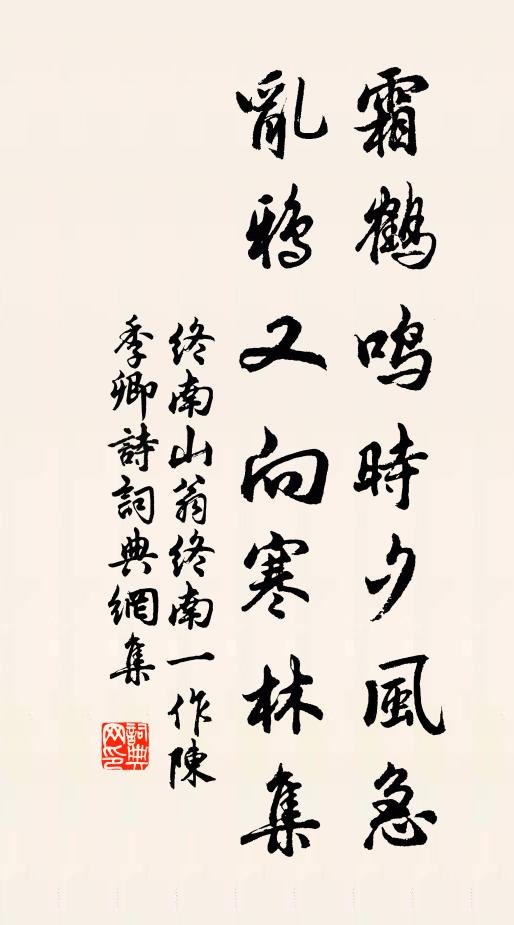 霜鶴鳴時夕風急
亂鴉又向寒林集
終南山翁終南一作陳
季卿詩詞典網集
詞典
网印